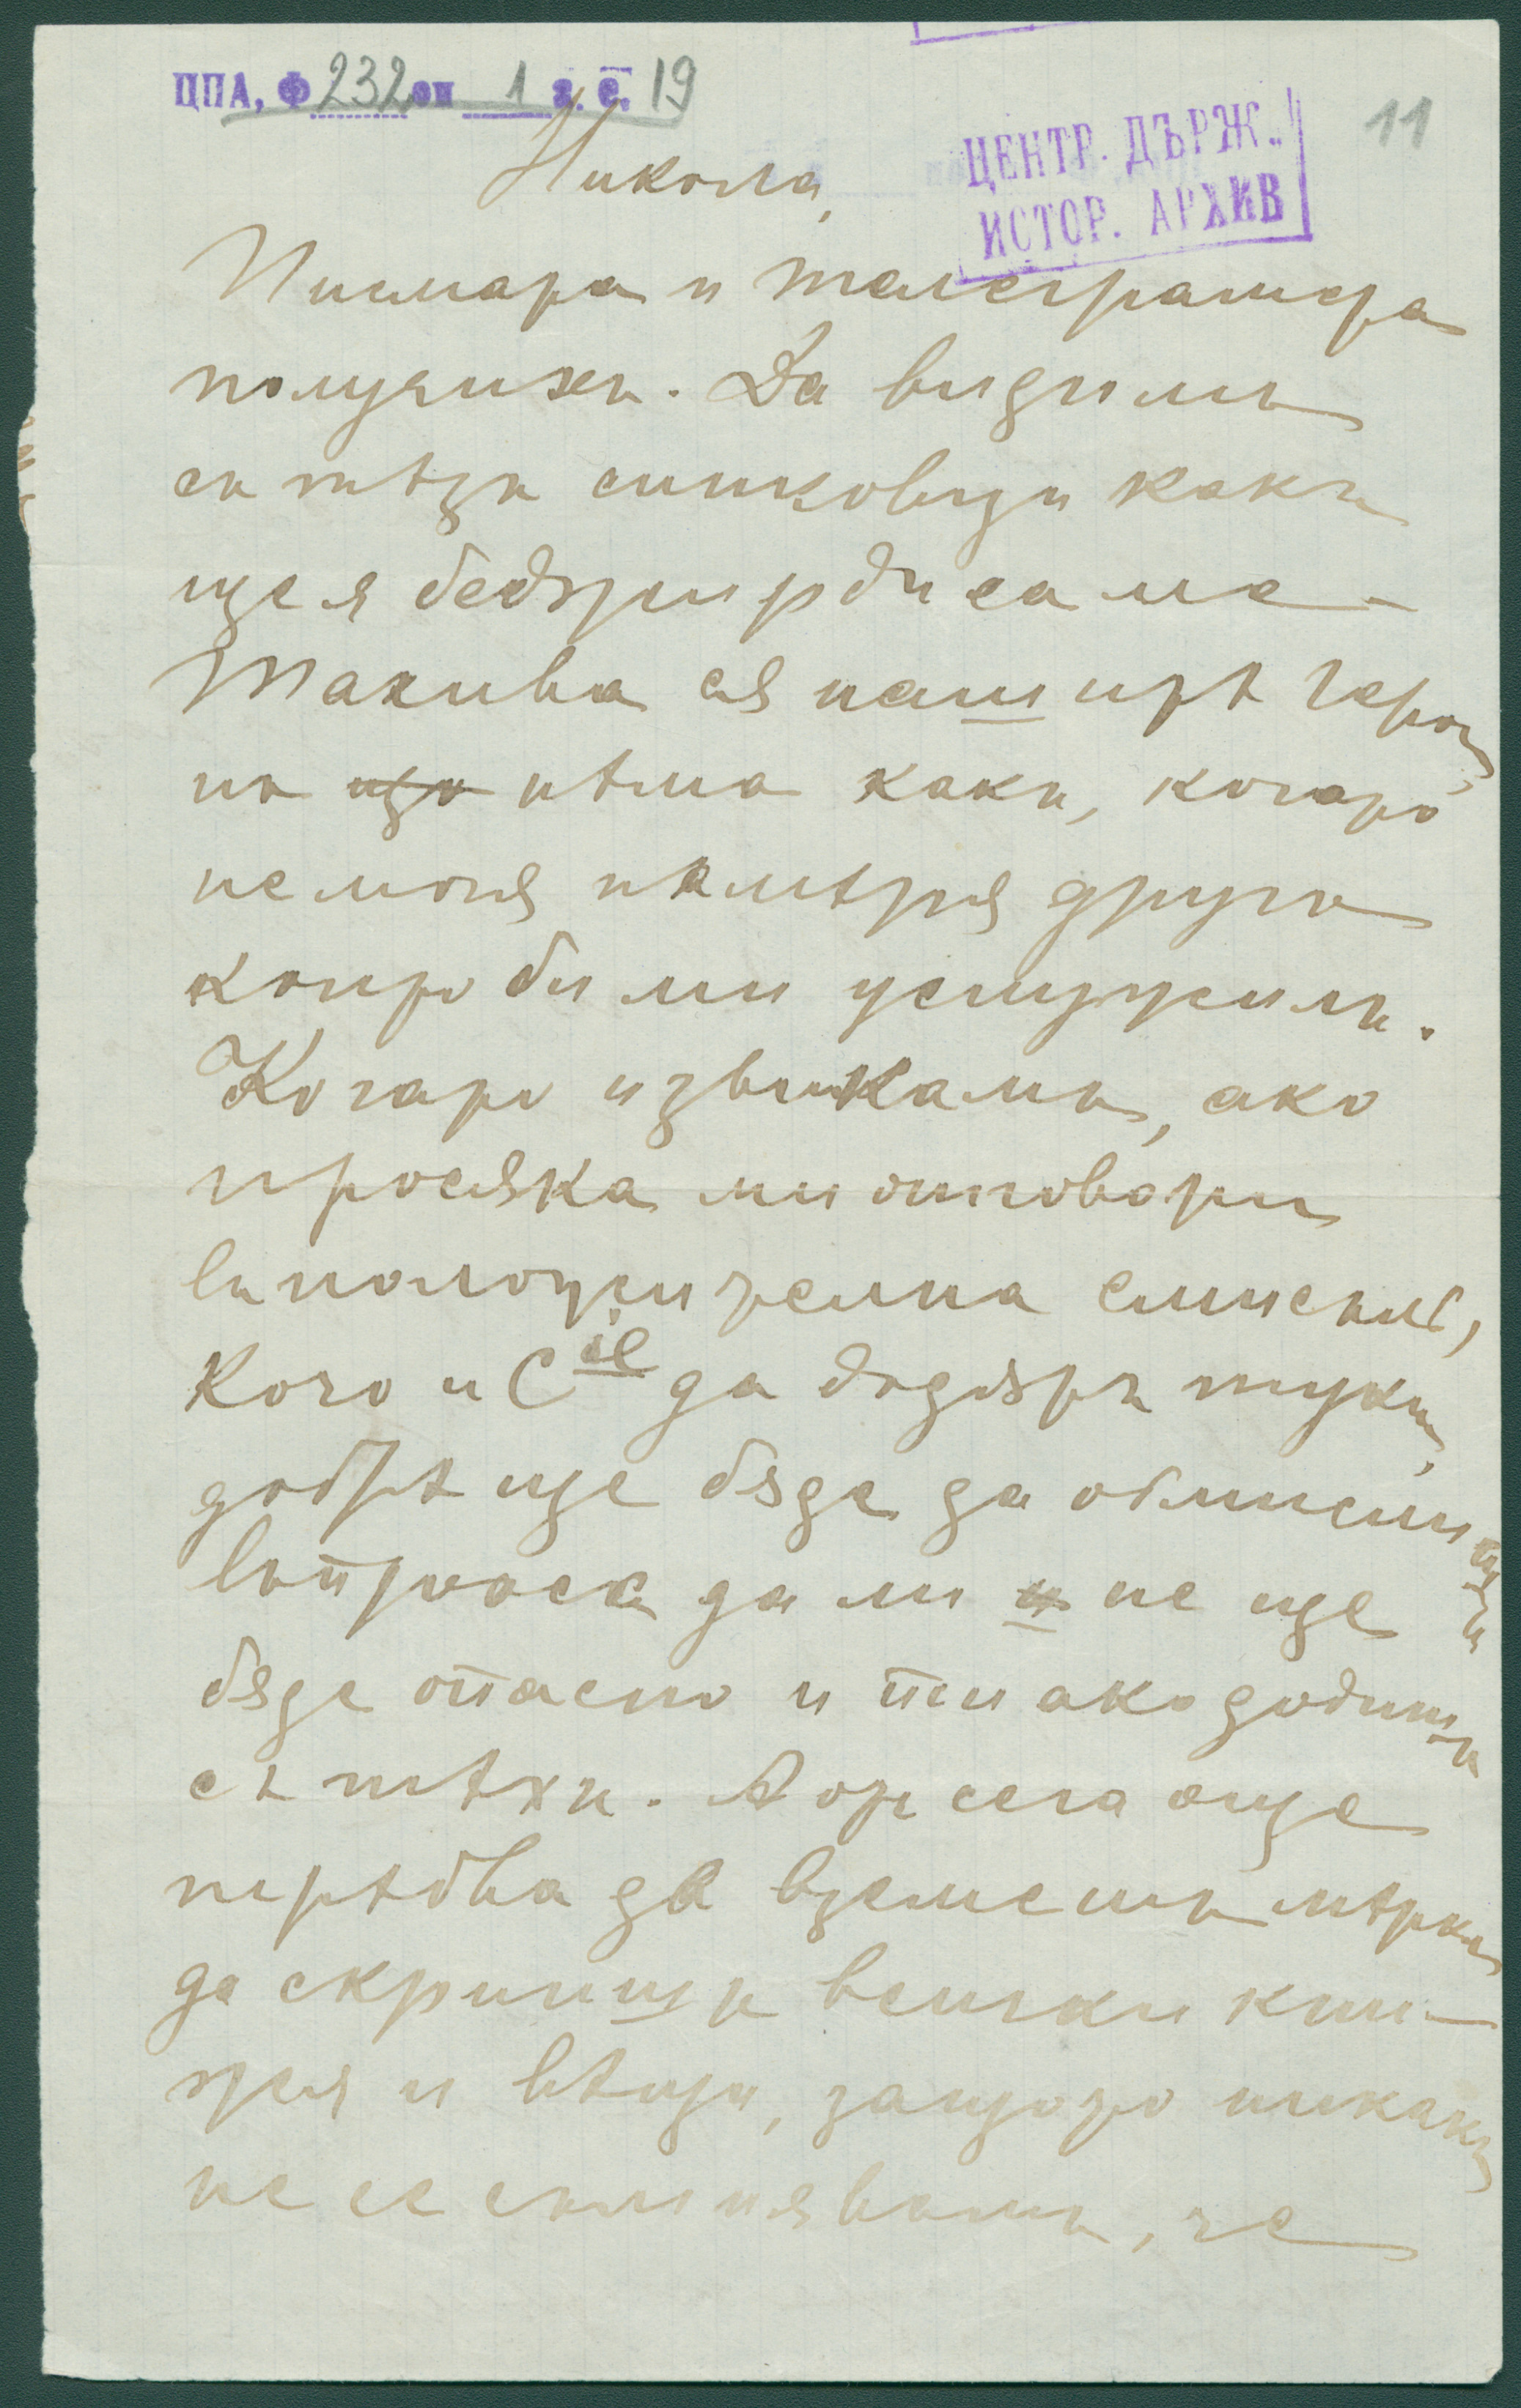 ЦПА, Ф 232 оп 1 а. е. 19
11
ЦЕНТР. ДЪРЖ.
ИСТОР. АРХИВ
Никола,
Писмата и телеграмата
получихъ. Да видимъ
съ тѣзи синковци какъ
ще я
Такива сѫ нашитѣ герои,
но що нѣма какъ, когато
не могѫ намѣрѭ други
който би ми услужилъ.
Когато извикамъ, ако
просяка ми отговори
въ положителна смисъль,
Кочо и Cie да додѫтъ тукъ,
добрѣ ще бѫде да обмислишъ
въпроса да ли и не ще
бѫде опасно и ти ако додишъ
съ тѣхъ. А отъ сега още
трѣбва да вземешъ мѣрки
да скриишъ всички кни-
жя и вѣщи, защото никакъ
не се съмнѣвамъ, че